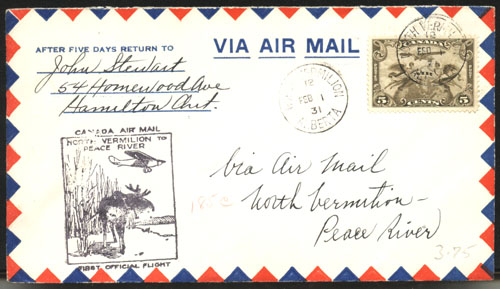 VIA AIR MAIL
AFTER FIVE DAYS RETURN TO
John Stewart
54 Homewood Ave
Hamilton Ont.
CANADA
5 CENTS 5
12
FEB 1
31
ALBERTA
CANADA AIR MAIL
NORTH VERMILION TO
PEACE RIVER
FIRST OFFICIAL FLIGHT
Via Air Mail
North Vermilion-
Peace River
3.75